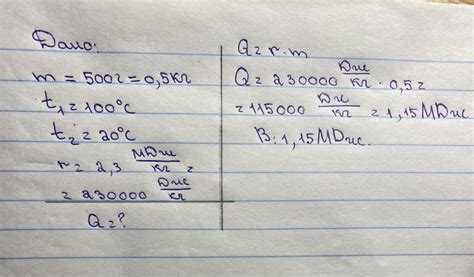 Дано:
m = 500г = 0,5кг
t₁ = 100°C
t₂ = 20°C
r = 2,3 МДж/кг =
= 230000 Дж/кг
Q = ?
Q = r · m
Q = 230000 Дж/кг · 0,5 =
= 115000 Дж/кг = 1,15МДж
В: 1,15МДж.